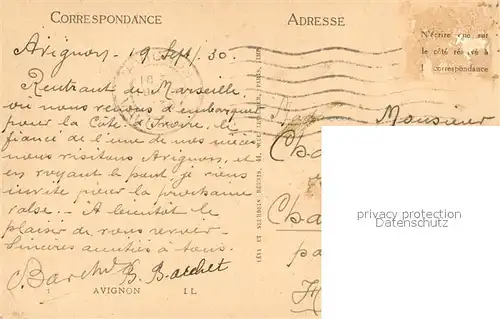 CORRESPONDANCE
ADRESSE
N'écrire que sur
le côté réservé à
la correspondance
Avignon 19 Sept/30.
Rentrant de Marseille
où nous venons d'embarquer
pour la Côte d'Ivoire, le
fiancé de l'une de nos nièces
nous visitons Avignon, et
en voyant le pont, je viens
invité pour la prochaine
valse -- A bientôt le
plaisir de vous revoir.
Sincères amitiés à tous.
B. Barchet
Monsieur
LÉVY ET NEURDEIN RÉUNIS
privacy protection
Datenschutz
1 AVIGNON LL